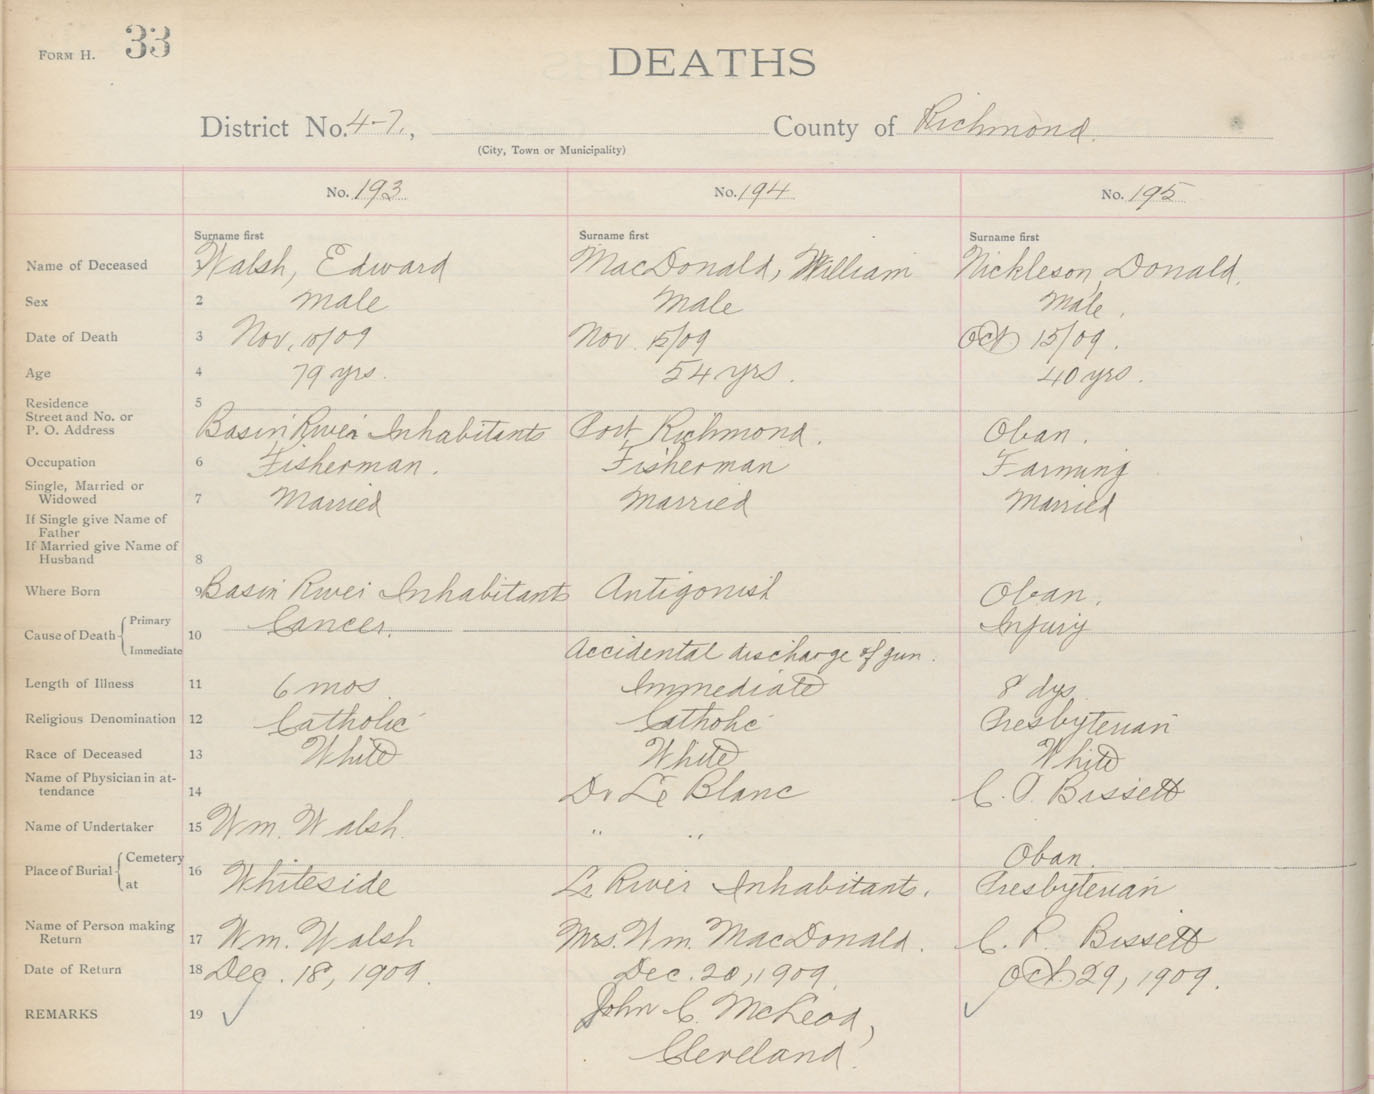 FORM H. 33
DEATHS
District No. 4-7., County of Richmond.
(City, Town or Municipality)
No. 193 No. 194 No. 195
Surname first Surname first Surname first
Name of Deceased 1 Walsh, Edward MacDonald, William Nickleson, Donald.
Sex 2 male Male Male.
Date of Death 3 Nov. /09 Nov. 15/09 Oct 15/09.
Age 4 79 yrs. 54 yrs. 40 yrs.
Residence 5
Street and No. or
P. O. Address Basin River Inhabitants Port Richmond. Oban.
Occupation 6 Fisherman. Fisherman Farming
Single, Married or
Widowed 7 Married Married Married
If Single give Name of
Father
If Married give Name of
Husband 8
Where Born 9 Basin River Inhabitants Antigonish Oban.
Cause of Death Primary 10 Cancer. Injury
Immediate Accidental discharge of gun.
Length of Illness 11 6 mos. Immediate 8 dys.
Religious Denomination 12 Catholic Catholic Presbyterian
Race of Deceased 13 White White White
Name of Physician in at-
tendance 14 Dr Le Blanc C. P. Bissett
Name of Undertaker 15 Wm. Walsh. " "
Place of Burial Cemetery 16 Oban.
at Whiteside Lr River Inhabitants. Presbyterian
Name of Person making
Return 17 Wm. Walsh Mrs. Wm. MacDonald. C. P. Bissett
Date of Return 18 Dec. 18, 1909. Dec. 20, 1909. Oct 29, 1909.
REMARKS 19 John C. McLeod,
Cleveland.